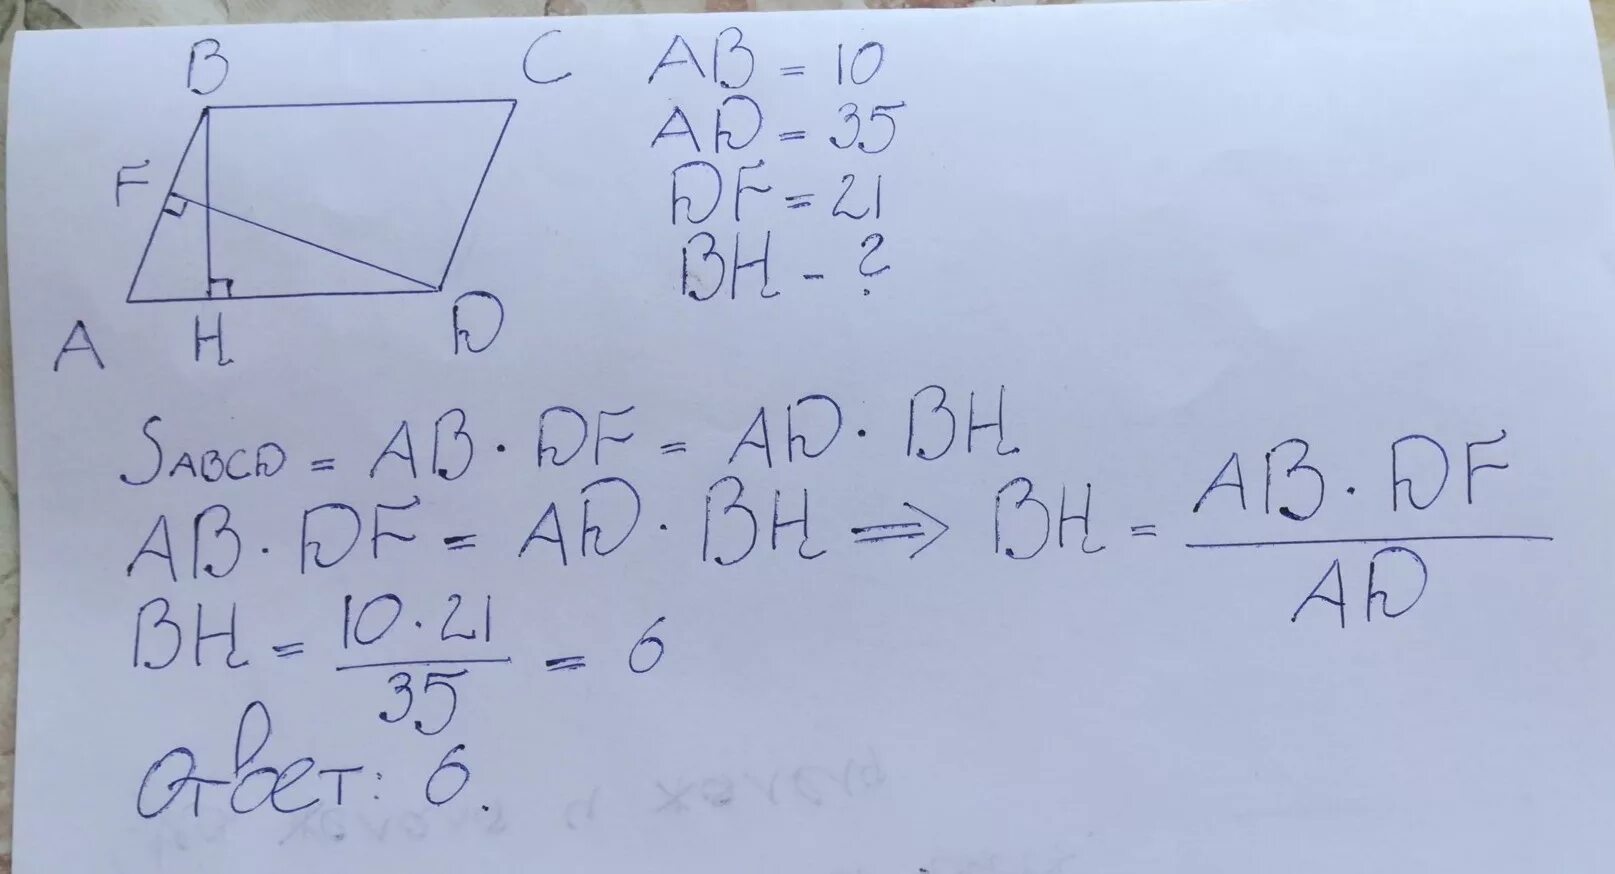 B C
F
A H D
AB = 10
AD = 35
DF = 21
BH - ?
SABCD = AB · DF = AD · BH
AB · DF = AD · BH ⇒ BH = AB · DF / AD
BH = 10 · 21 / 35 = 6
Ответ: 6.